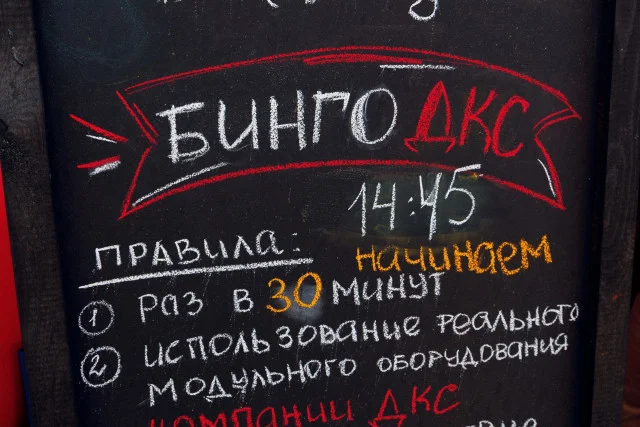 БИНГО ДКС
14:45
ПРАВИЛА: начинаем
1 РАЗ В 30 МИНУТ
2 ИСПОЛЬЗОВАНИЕ РЕАЛЬНОГО
МОДУЛЬНОГО ОБОРУДОВАНИЯ
КОМПАНИИ ДКС